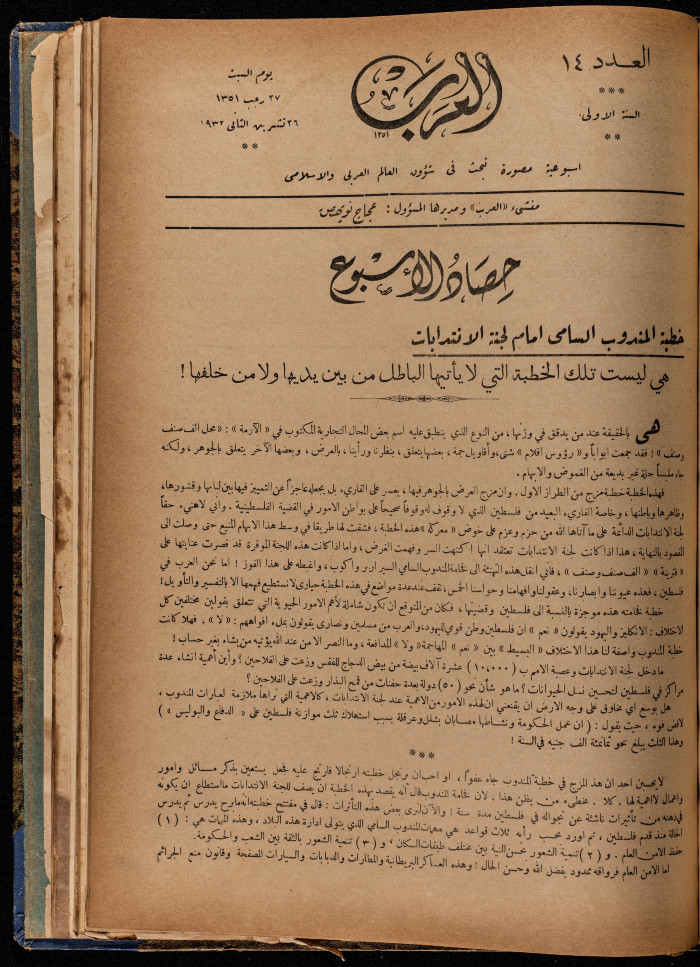 العدد ١٤
***
السنة الاولى
**
العرب
١٣٥١
يوم السبت
٢٧ رجب ١٣٥١
٢٦ تشرين الثانى ١٩٣٢
**
اسبوعية مصورة تبحث فى شؤون العالم العربى والاسلامى
منشىء «العرب» ومديرها المسؤول : عجاج نويهض
حصاد الأسبوع
خطبة المندوب السامى امام لجنة الانتدابات
هي ليست تلك الخطبة التي لا يأتيها الباطل من بين يديها ولا من خلفها !
هى بالحقيقة عند من يدقق في وزنها ، من النوع الذي ينطبق عليه اسم بعض المحال التجارية المكتوب في « الآرمة » : « محل الف صنف
وصنف » ! فقد جمعت ابواباً و« رؤوس اقلام » شتى ، وأقاويل جمة ، بعضها يتعلق ، بنظرنا ورأينا ، بالعرض ، وبعضها الآخر يتعلق بالجوهر ، ولكنه
جاء ملبساً حلة غير بديعة من الغموض والابهام .
فهذه الخطبة خطبة مزج من الطراز الاول . وان مزج العرض بالجوهر فيها ، يعسر على القارىء بل يجعله عاجزاً عن التمييز فيها بين لبابها وقشورها ،
وظاهرها وباطنها ، وخاصة القارىء البعيد من فلسطين الذي لا وقوف له وقوفاً صحيحاً على بواطن الامور في القضية الفلسطينية . واني لاهنىء حقاً
لجنة الانتدابات الدائمة على ما آتاها الله من حزم وعزم على خوض « معركة » هذه الخطبة ، فشقت لها طريقا في وسط هذا الابهام المنيع حتى وصلت الى
المقصود بالنهاية ، هذا اذا كانت لجنة الانتدابات تعتقد انها اكتنهت السر وفهمت الغرض ، واما اذا كانت هذه اللجنة الموقرة قد قصرت عنايتها على
« فترينة » « الف صنف وصنف » ، فأني انقل هذه التهنئة الى فخامة المندوب السامي السير ارثر واكوب ، واغبطه على هذا الفوز ! اما نحن العرب في
فلسطين ، فهذه عيوننا وابصارنا ، وعقولنا وافهامنا وحواسنا الخمس ، تقف عند عدة مواضع في هذه الخطبة حيارى لا نستطيع فهمها الا بالتفسير والتأويل !
خطبة فخامته هذه موجزة بالنسبة الى فلسطين وقضيتها ، فكان من المتوقع ان تكون شاملة لأهم الامور الحيوية التي تتعلق بقولين مختلفين كل
الاختلاف : الانكليز واليهود يقولون « نعم » ان فلسطين وطن قومي لليهود ، والعرب من مسلمين ونصارى يقولون بملء افواههم : « لا » . فهلا كانت
خطبة المندوب واصفة لنا هذا الاختلاف « البسيط » بين « نعم » المهاجمة و« لا » المدافعة ، وما النصر الا من عند الله يؤتيه من يشاء بغير حساب !
ما دخل لجنة الانتدابات وعصبة الامم ب (١٠,٠٠٠) عشرة آلاف بيضة من بيض الدجاج للفقس وزعت على الفلاحين ؟ وأين أهمية انشاء عدة
مراكز في فلسطين لتحسين نسل الحيوانات ؟ ما هو شأن نحو (٥٠) دولة بعدة حفنات من قمح البذار وزعت على الفلاحين ؟
هل بوسع اي مخلوق على وجه الارض ان يقنعني ان لهذه الامور من الاهمية عند لجنة الانتدابات ، كالاهمية التي نراها ملازمة لعبارات المندوب ،
لافض فوه ، حيث يقول : ( ان عمل الحكومة ونشاطها مصابان بشلل وعرقلة بسبب استهلاك ثلث موازنة فلسطين على « الدفاع والبوليس » )
وهذا الثلث يبلغ نحو ثمانمئة الف جنيه في السنة !
***
لا يحسبن احد ان هذ المزج في خطبة المندوب جاء عفوا ، او احبان رتجل خطبته ارتجالا فارتج عليه فجعل يستعين بذكر مسائل وامور
واعمال لا اهمية لها . كلا . مخطىء من يظن هذا . لان فخامة المندوب قال أنه يقصد بهذه الخطبة ان يصف للجنة الانتدابات ما استطاع ان يكونه
في ذهنه من تأثيرات ناشئة عن تجواله في فلسطين مدة سنة ! والآن لنرى بعض هذه التأثرات : قال في مفتتح خطبته انه ما برح يدرس ثم يدرس
الحالة منذ قدم فلسطين ، ثم اورد بحسب رأيه ثلاث قواعد هي مهمات المندوب السامي الذي يتولى ادارة هذه البلاد ، وهذه المهمات هي : ( ١ )
حفظ الامن العام . و ( ٢ ) تنمية الشعور بحسن النية بين مختلف طبقات السكان ، و ( ٣ ) تنمية الشعور بالثقة بين الشعب والحكومة.
اما الامن العام فرواقه ممدود بفضل الله وحسن الحال ! وهذه العساكر البريطانية والمطارات والدبابات والسيارات المصفحة وقانون منع الجرائم